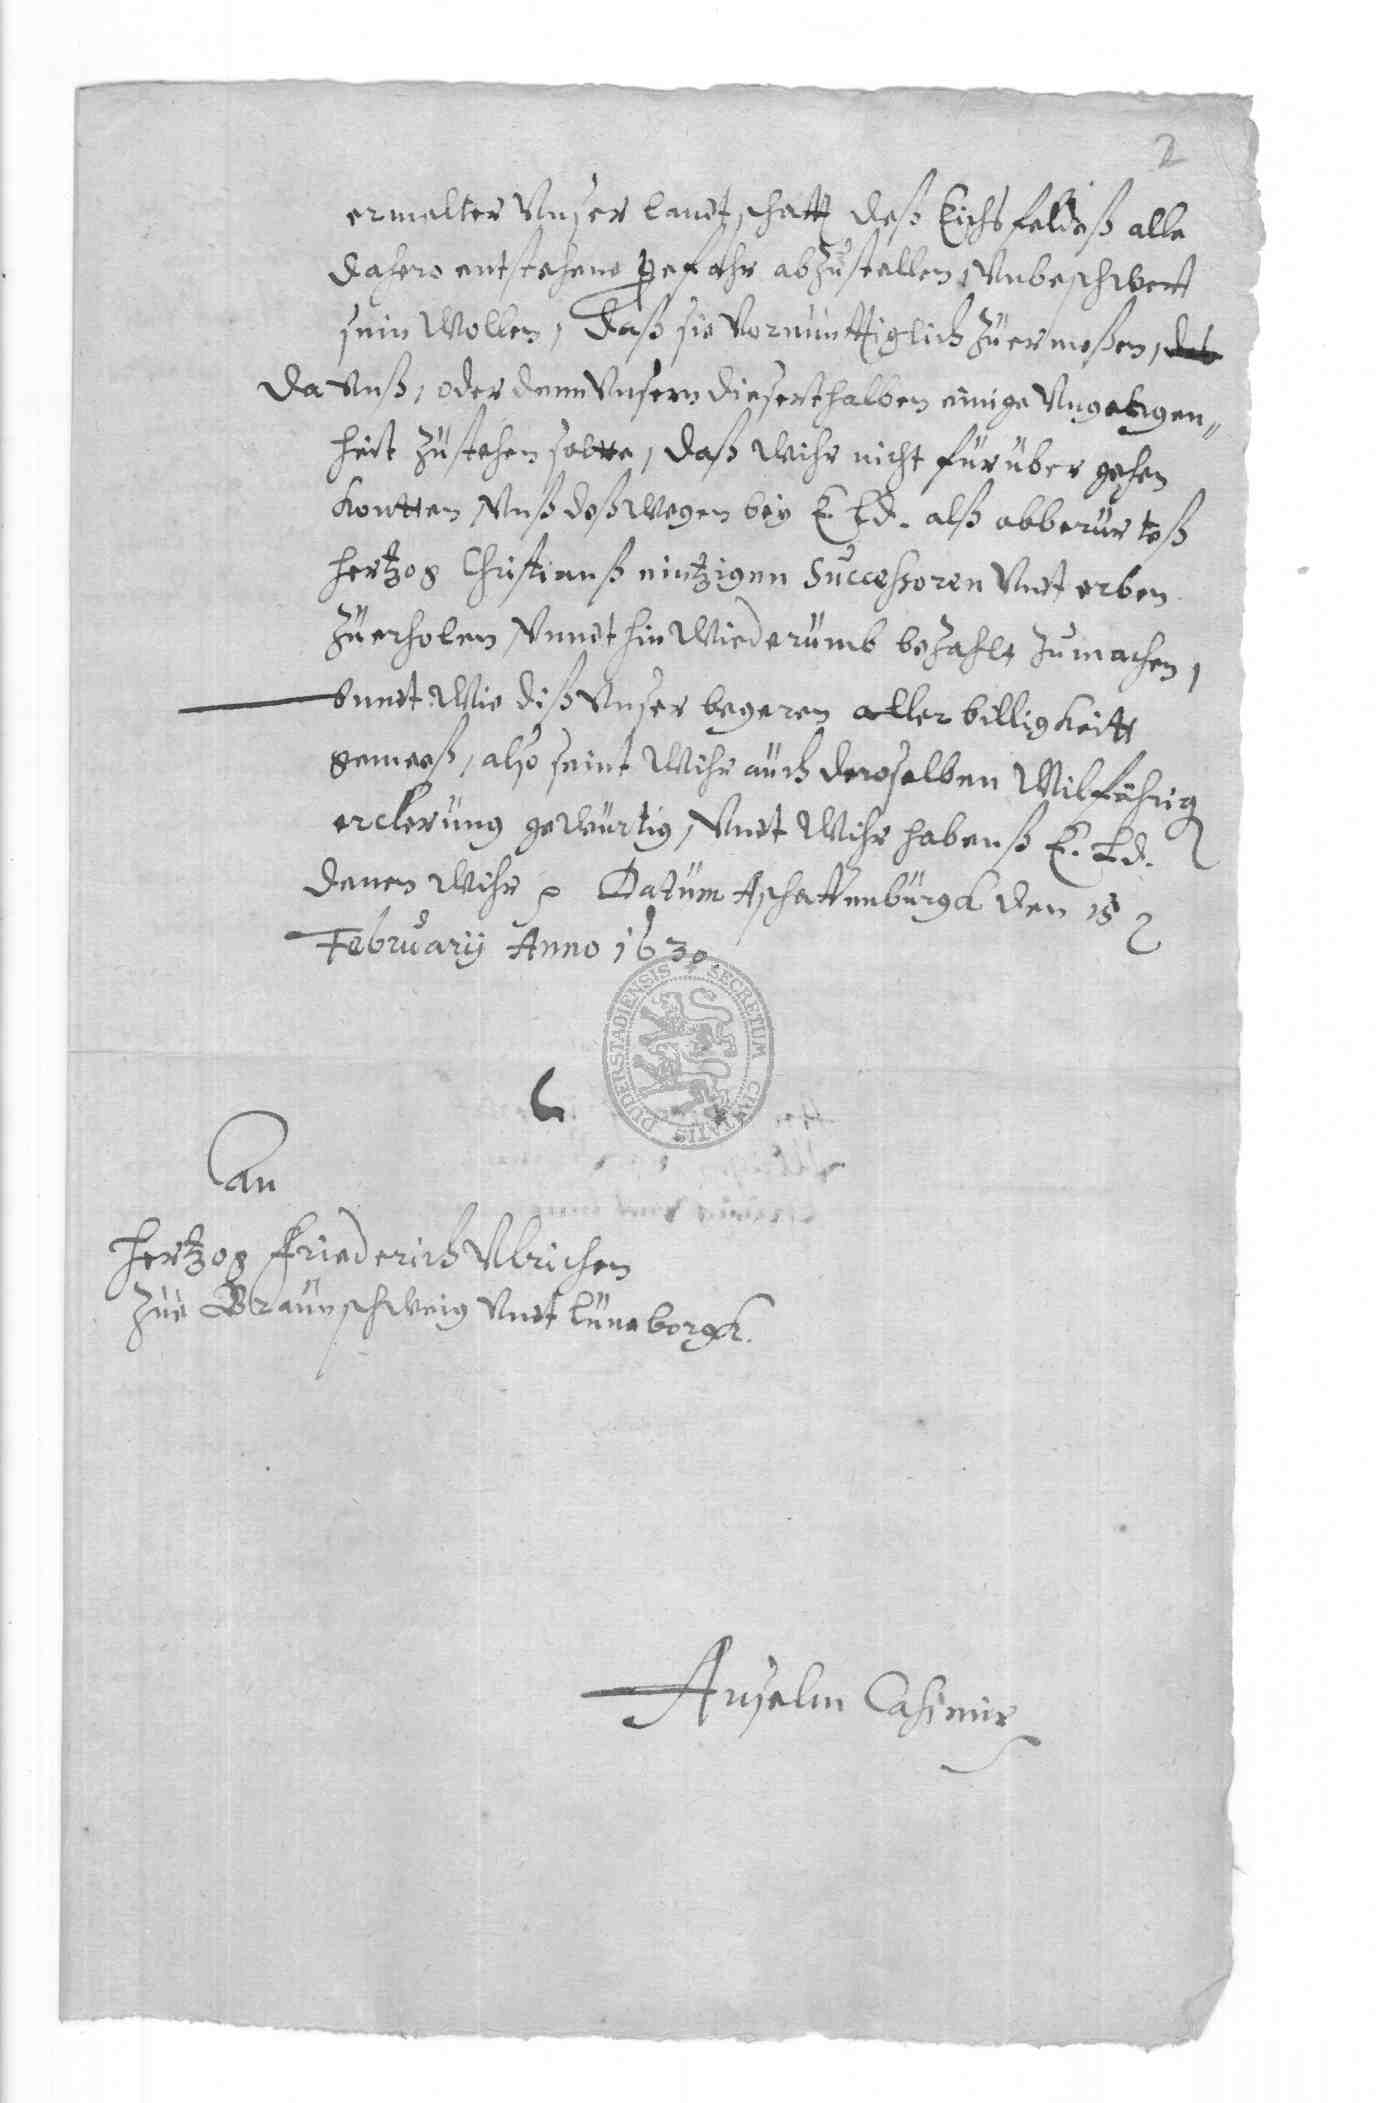 2
ermelter Vnser landtschafft deß Eichsfeldeß alle
dahero entstehene gefahr abzustellen, Vnbeschwert
sein wollen, Daß sie Vornünfftiglich zu ermeßen,
da Vnß, oder denn Vnsern dieserthalben einige Vngelegen„
heit zustehen solte, daß wihr nicht fürüber gehen
kontten Vnß deßwegen bey E. Ld. alß obberürteß
Hertzog Christianß eintzigen Successoren Vndt erben
zuerholen Vnndt hinwiederumb bezahlt zumachen,
Vnndt wie diß Vnser begeren aller billigkeitt
gemeeß, also seint wihr auch deroselben wilfährig
erclerung gewürtig, Vndt wihr habenß E. Ld.
denen wihr p Datum Aschaffenburgk den 18
February Anno 1630.
SECRETUM CIVITATIS DUDERSTADIENSIS
An
Hertzog Friederich Vlrichen
zue Braunschweig Vndt Lüneborgk.
Anselm Casimir